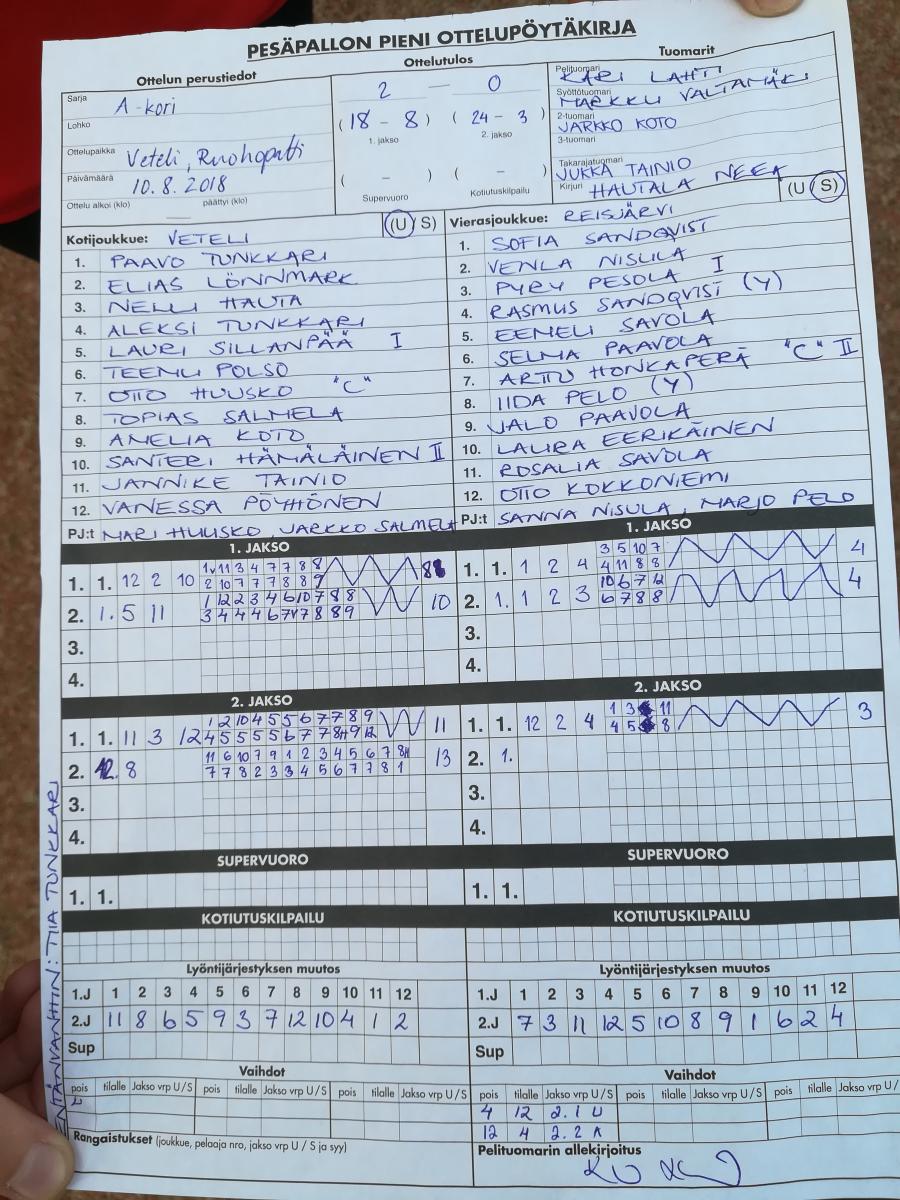 PESÄPALLON PIENI OTTELUPÖYTÄKIRJA
Ottelun perustiedot
Sarja A-kori
Lohko
Ottelupaikka Veteli, Ruohopatti
Päivämäärä 10.8.2018
Ottelu alkoi (klo) päättyi (klo)
Ottelutulos
2 — 0
(18 - 8) (24 - 3)
1. jakso 2. jakso
( - ) ( - )
Supervuoro Kotiutuskilpailu
Tuomarit
Pelituomari KARI LAHTI
Syöttötuomari MARKKU VALTAMÄKI
2-tuomari JARKKO KOTO
3-tuomari
Takarajatuomari JUKKA TAINIO
Kirjuri HAUTALA NEEA
Kotijoukkue: VETELI (U S)
1. PAAVO TUNKKARI
2. ELIAS LÖNNMARK
3. NELLI HAUTA
4. ALEKSI TUNKKARI
5. LAURI SILLANPÄÄ I
6. TEEMU POLSO
7. OTTO HUUSKO "C"
8. TOPIAS SALMELA
9. AMELIA KOTO
10. SANTERI HÄMÄLÄINEN II
11. JANNIKE TAINIO
12. VANESSA PÖYHÖNEN
PJ:t MARI HUUSKO, JARKKO SALMELA
Vierasjoukkue: REISJÄRVI (U S)
1. SOFIA SANDQVIST
2. VENLA NISULA
3. PYRY PESOLA I
4. RASMUS SANDQVIST (Y)
5. EEMELI SAVOLA
6. SELMA PAAVOLA
7. ARTTU HONKAPERÄ "C" II
8. IIDA PELO (Y)
9. JALO PAAVOLA
10. LAURA EERIKÄINEN
11. ROSALIA SAVOLA
12. OTTO KOKKONIEMI
PJ:t SANNA NISULA, MARJO PELO
1. JAKSO
1. 1. 12 2 10
2 10 7 7 7 8 8 9
2. 1. 5 11 10
1 12 2 3 4 6 10 7 8 8
3.
4.
1. JAKSO
1. 1. 1 2 4 4
3 5 10 7
4 11 8 8
2. 1. 1 2 3 4
10 6 7 12
6 7 8 8
3.
4.
2. JAKSO
1. 1. 11 3 12 11
1 2 10 4 5 5 6 7 7 8 9
2. 8 13
11 6 10 7 9 1 2 3 4 5 6 7 8H
7 7 8 2 3 3 4 5 6 7 7 8 1
3.
4.
2. JAKSO
1. 1. 12 2 4 3
1 3 11
4 5 8
2. 1.
3.
4.
SUPERVUORO
1. 1.
SUPERVUORO
1. 1.
KOTIUTUSKILPAILU
KOTIUTUSKILPAILU
Lyöntijärjestyksen muutos
1.J 1 2 3 4 5 6 7 8 9 10 11 12
2.J 11 8 6 5 9 3 7 12 10 4 1 2
Sup
Lyöntijärjestyksen muutos
1.J 1 2 3 4 5 6 7 8 9 10 11 12
2.J 7 3 11 12 5 10 8 9 1 6 2 4
Sup
Vaihdot
pois tilalle Jakso vrp U/S pois tilalle Jakso vrp U/S pois tilalle Jakso vrp U/S
Vaihdot
pois tilalle Jakso vrp U/S pois tilalle Jakso vrp U/S pois tilalle Jakso vrp U/
4 12 2.1 U
12 4 2.2
Rangaistukset (joukkue, pelaaja nro, jakso vrp U / S ja syy)
Pelituomarin allekirjoitus
TIIA TUNKKARI